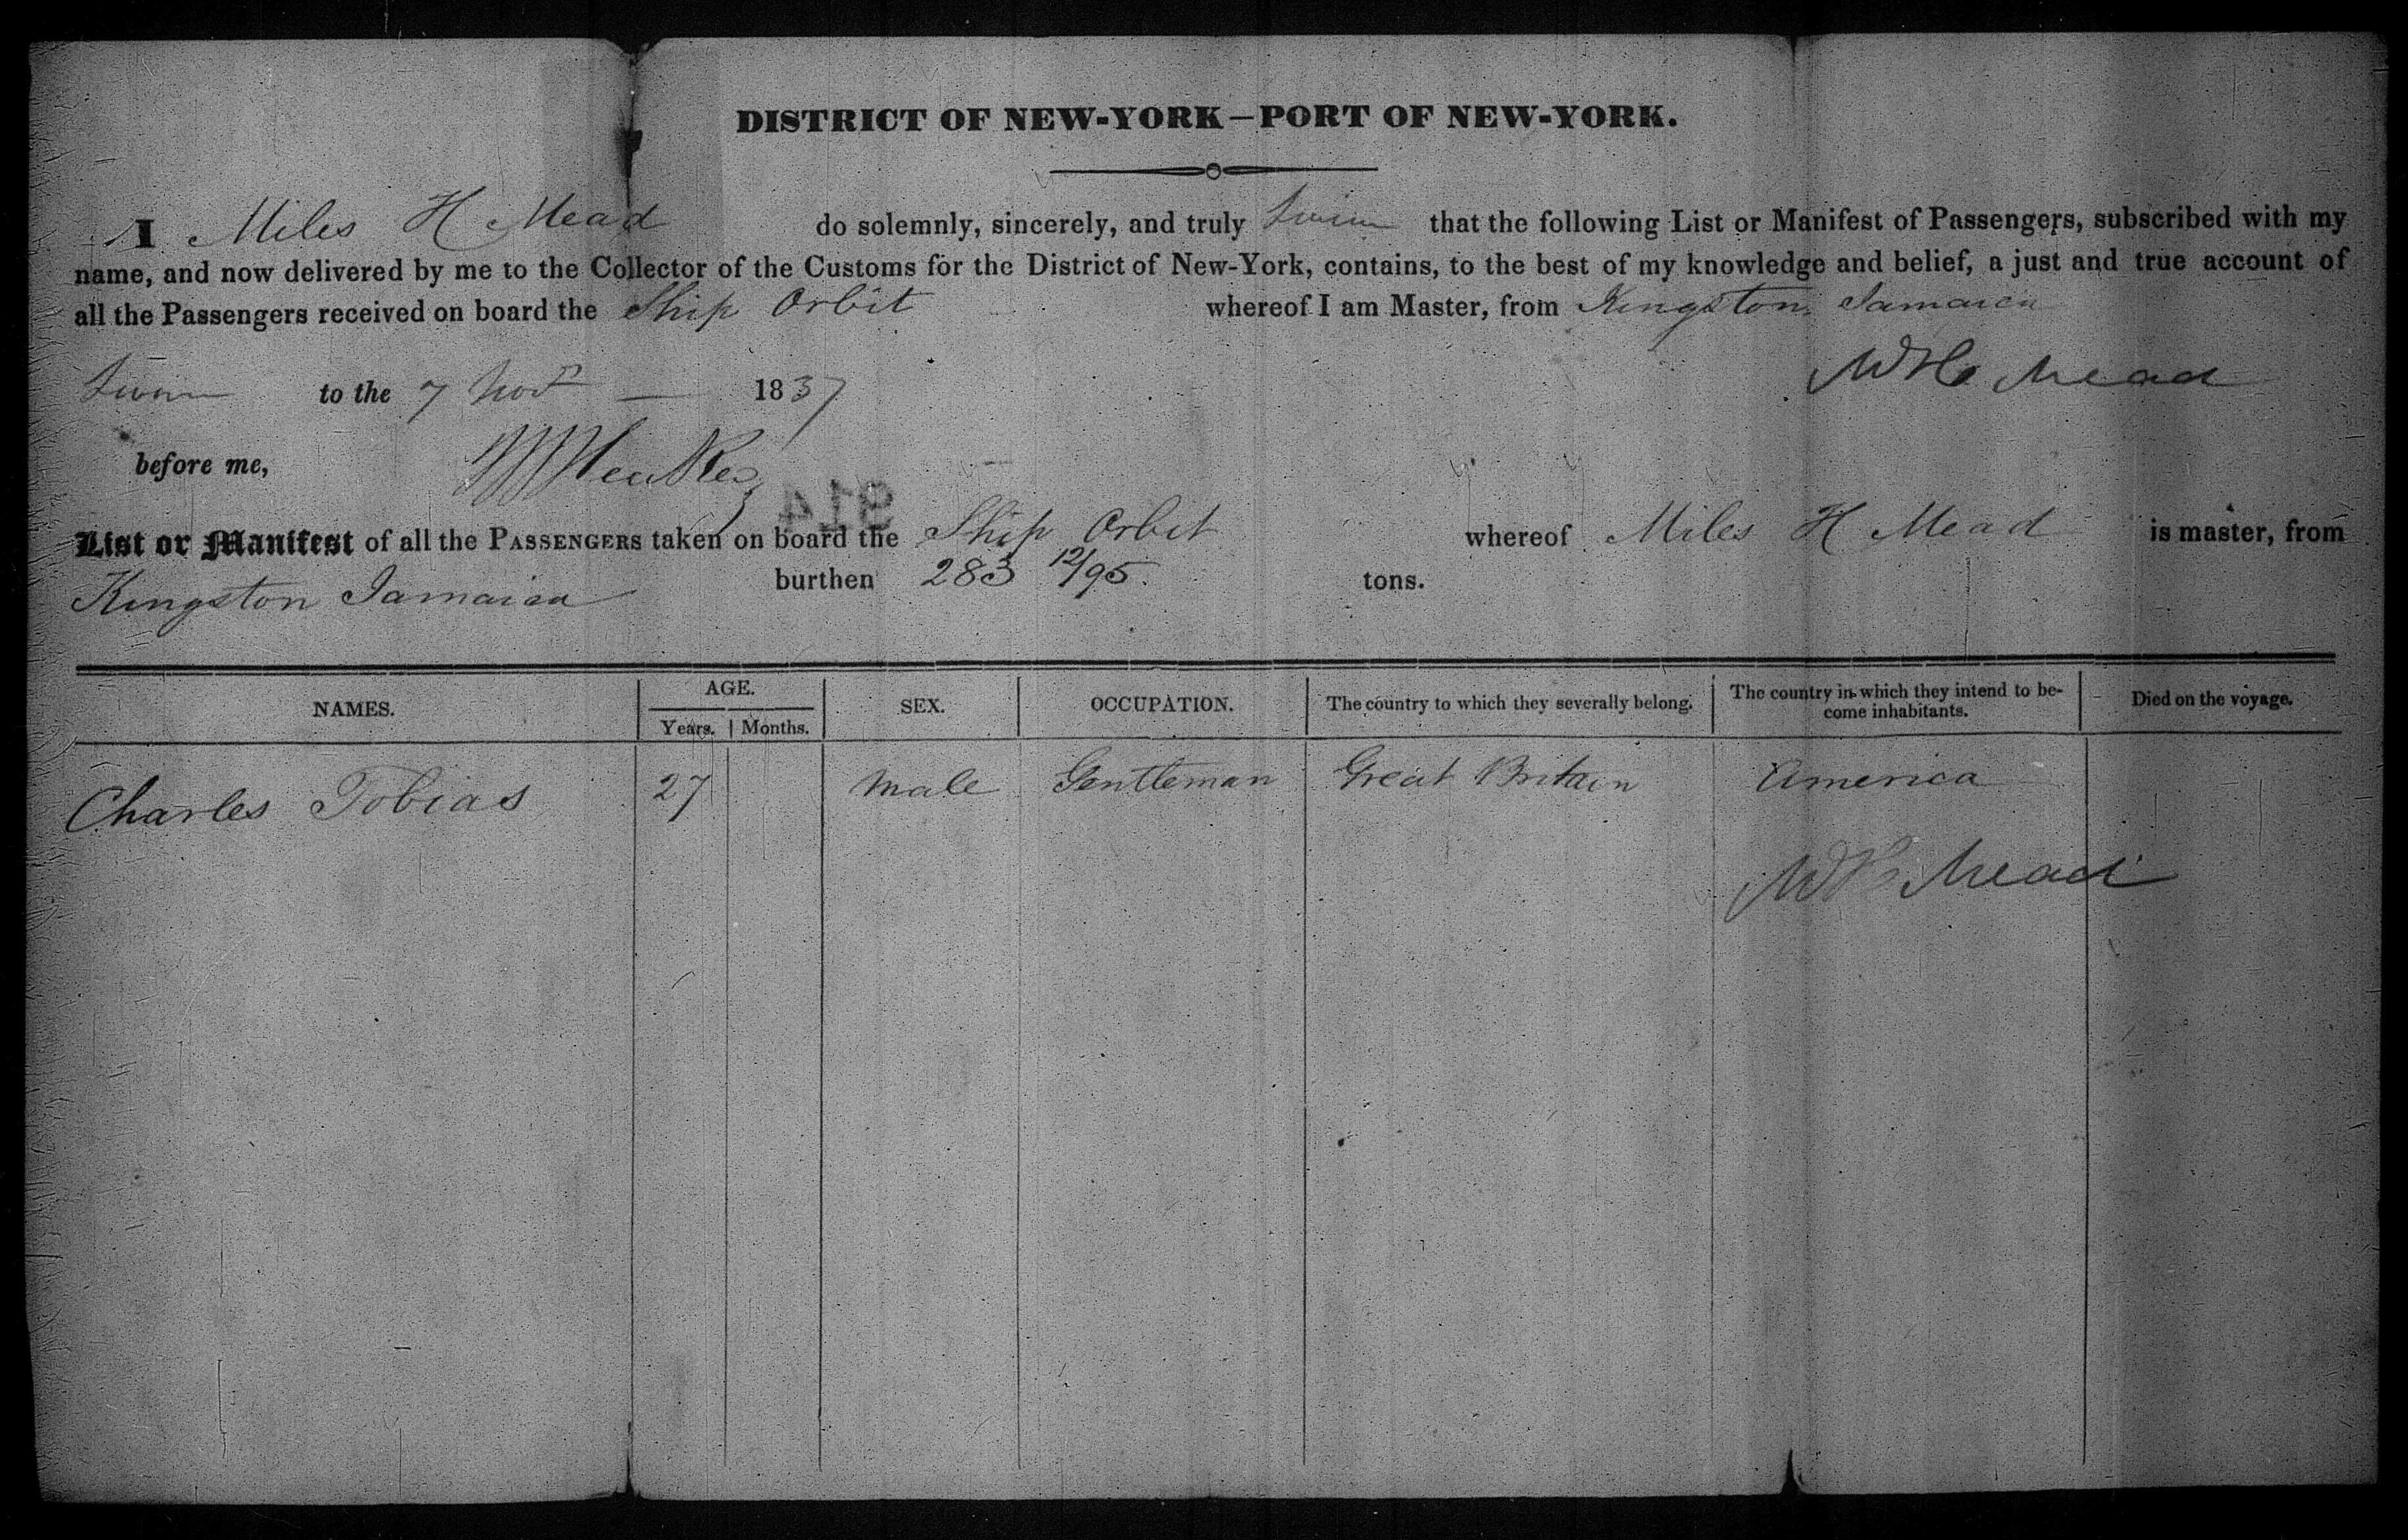 DISTRICT OF NEW-YORK—PORT OF NEW-YORK.
I Miles H Mead do solemnly, sincerely, and truly swear that the following List or Manifest of Passengers, subscribed with my
name, and now delivered by me to the Collector of the Customs for the District of New-York, contains, to the best of my knowledge and belief, a just and true account of
all the Passengers received on board the Ship Orbit whereof I am Master, from Kingston Jamaica
Sworn to the 7 Novr 1837 MH Mead
before me,
914
List or Manifest of all the PASSENGERS taken on board the Ship Orbit whereof Miles H Mead is master, from
Kingston Jamaica burthen 283 12/95 tons.
NAMES. AGE. Years. Months. SEX. OCCUPATION. The country to which they severally belong. The country in which they intend to be-
come inhabitants. Died on the voyage.
Charles Tobias 27 Male Gentleman Great Britain America
MH Mead